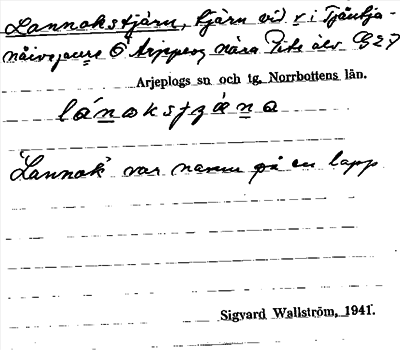 Lannokstjärn, tjärn vid r i Tjäutja-
nåivejaure Ö Arjeplog nära Pite älv G27
Arjeplogs sn och tg, Norrbottens län.
lánokstgäna
"Lannok" var namn på en lapp
Sigvard Wallström, 1941.